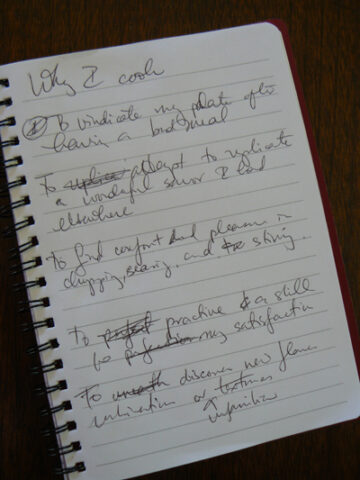 Why I cook
To vindicate my palate after
having a bad meal
To attempt to replicate
a wonderful savor I had
elsewhere
to find comfort and pleasure in
chopping, searing, and stirring.
to practice a skill
to my satisfaction
To discover new flavor
combinations or textures